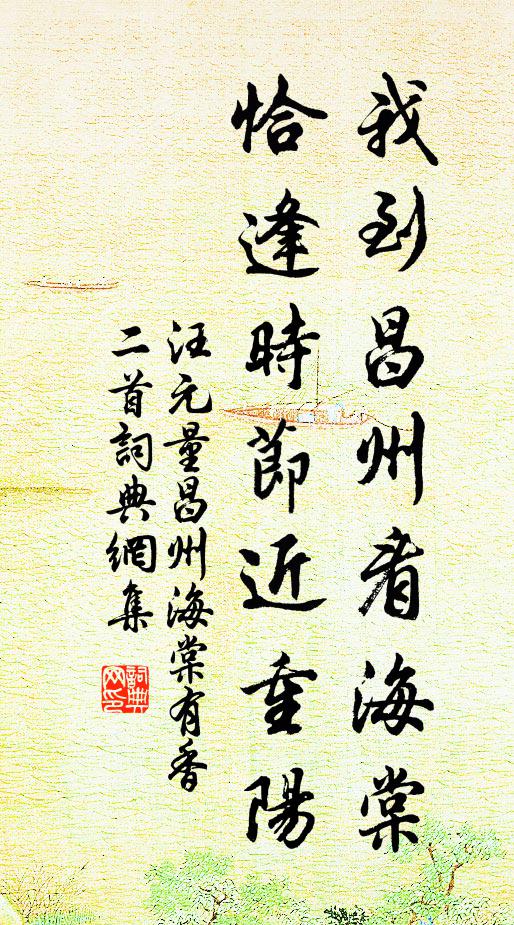 我到昌州看海棠
恰逢時節近重陽
汪元量昌州海棠有香
二首詞典網集
詞典網印